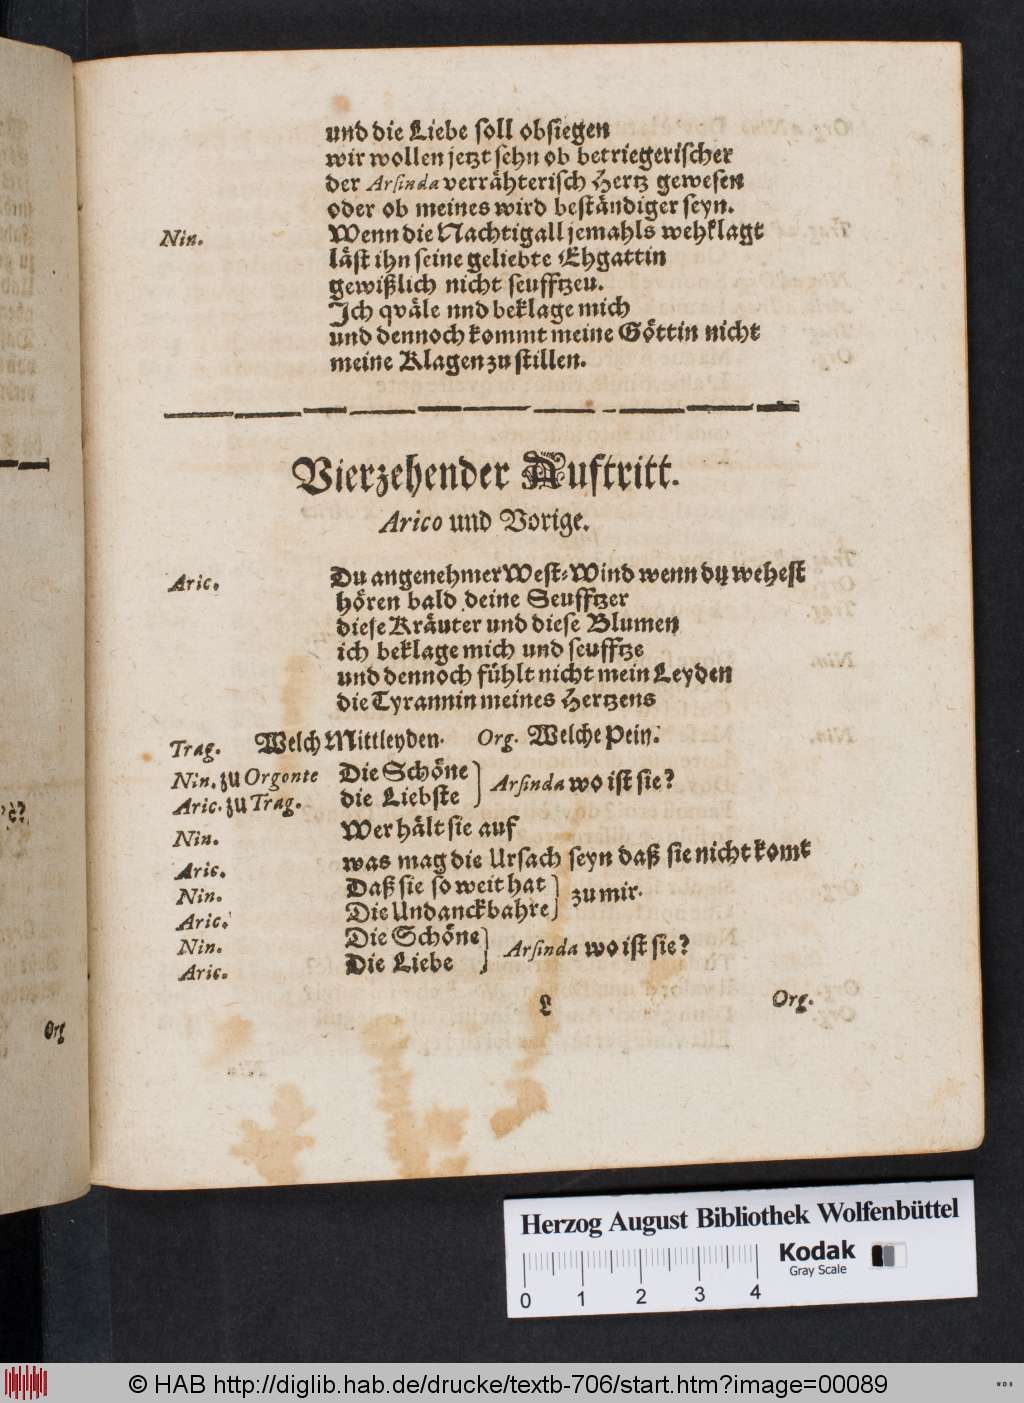 und die Liebe soll obsiegen
wir wollen jetzt sehn ob betriegerischer
der Arsinda verrähterisch Hertz gewesen
oder ob meines wird beständiger seyn.
Nin. Wenn die Nachtigall jemahls wehklagt
läst ihn seine geliebte Ehgattin
gewißlich nicht seufftzeu.
Ich qväle nnd beklage mich
und dennoch kommt meine Göttin nicht
meine Klagen zu stillen.
Vierzehender Auftritt.
Arico und Vorige.
Aric. Du angenehmer West-Wind wenn du wehest
hören bald deine Seufftzer
diese Kräuter und diese Blumen
ich beklage mich und seufftze
und dennoch fühlt nicht mein Leyden
die Tyrannin meines Hertzens
Trag. Welch Mittleyden. Org. Welche Pein.
Nin. zu Orgonte Die Schöne
Aric. zu Trag. die Liebste } Arsinda wo ist sie?
Nin. Wer hält sie auf
Aric. was mag die Ursach seyn daß sie nicht komt
Nin. Daß sie so weit hat
Aric. Die Undanckbahre } zu mir.
Nin. Die Schöne
Aric. Die Liebe } Arsinda wo ist sie?
L Org.
Org
Herzog August Bibliothek Wolfenbüttel
Kodak
Gray Scale
0 1 2 3 4
© HAB http://diglib.hab.de/drucke/textb-706/start.htm?image=00089